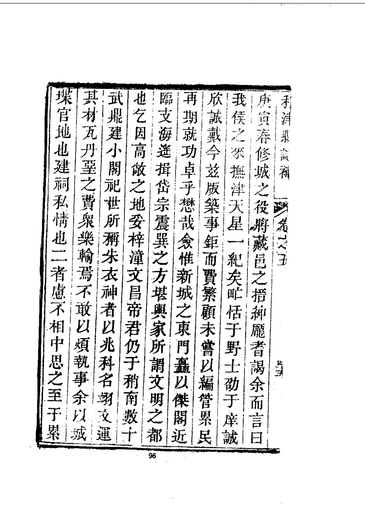 江津縣志 卷之五
庚寅春修城之役將蕆邑之搢紳龐耆謁余而言曰
我侯之來撫津天星一紀矣甿恬于野士劭于庠誠
欣誠戴今茲版築事鉅而費繁顧未嘗以編管累民
再期就功卓乎懋哉僉惟新城之東門矗以傑閣近
臨支海遙揖岱宗震巽之方堪輿家所謂文明之都
也乞因高敞之地妥梓潼文昌帝君仍于稍南數十
武鼎建小閣祀世所稱朱衣神者以兆科名翊文運
其材瓦丹堊之費衆樂輸焉不敢以煩執事余以城
堞官地也建祠私情也二者慮不相中思之至于累
96